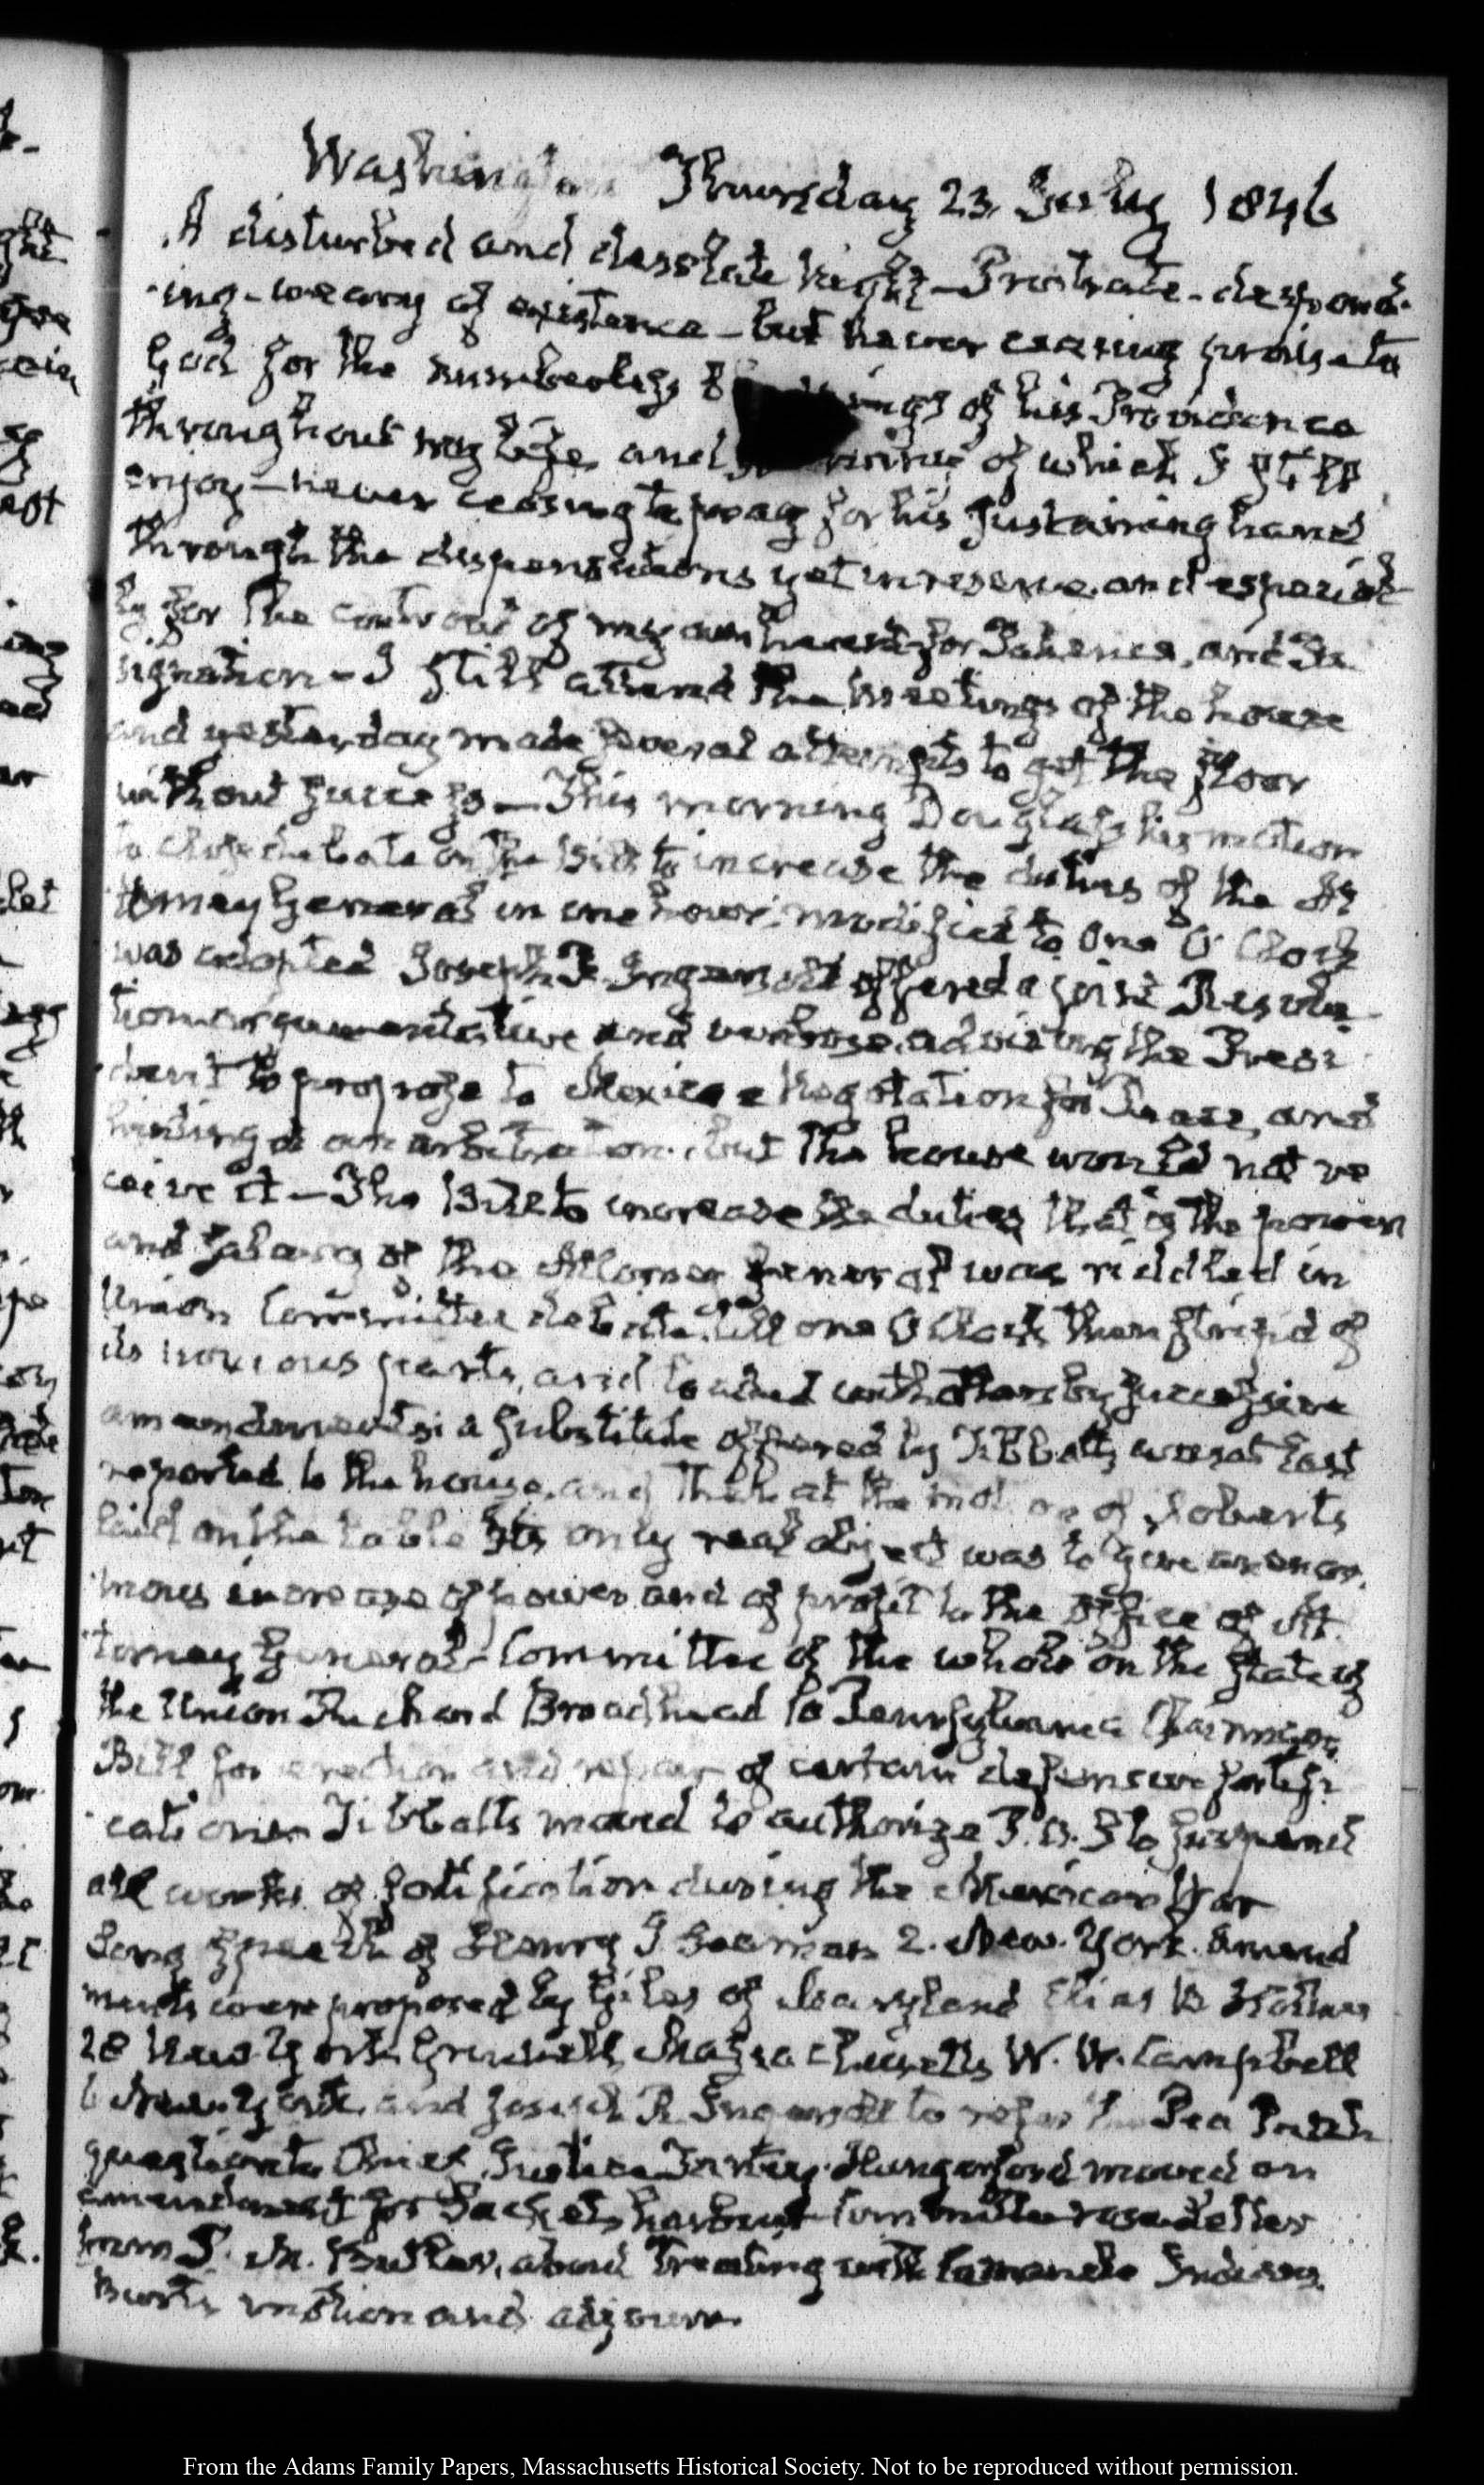 Washington Thursday 23. July 1846
A disturbed and desolate night — Prostrate - despond-
ing - weary of existence - but never ceasing praise to
God for the numberless of his Providence
throughout my life, and of which I still
enjoy - never ceasing to pray for his sustaining hand
through the dispensations yet in reserve, and especial-
ly for the controul of my own heart for Patience, and Re
signation - I still attend the meetings of the house
and yesterday made several attempts to get the floor
without success — This morning Douglass his motion
to close debate on the Bill to increase the duties of the At
torney General in one hour, modified to One O'Clock
was adopted Joseph R. Ingersoll offered a joint Resolu-
tion argumentative and verbose, advising the Presi
dent to propose to Mexico a Negotiation for Peace, and
hinting at an arbitration, but the house would not re
ceive it — The Bill to increase the duties that is the power
and salary of the Attorney General was riddled in
Union Committee debate till one O'Clock then stripped of
its noxious parts, and loaded with others by successive
amendments; a substitute offered by Tibbatts was at last
reported to the house, and then at the motion of Roberts
laid on the table Its only real object was to give an enor-
mous increase of power and of profit to the Office of At-
torney General - Committee of the whole on the State of
the Union Richard Brodhead 10 Pennsylvania Chairman
Bill for erection and repair of certain defensive fortifi
cations Tibbatts moved to authorize P.U.S to suspend
all works of fortification during the Mexican War
Long speech of Henry I Seaman 2. New-York. Amend
ments were proposed by Giles of Maryland Elias B Holmes
28 New-York Grinnell, Massachusetts W. W. Campbell
6 New-York, and Joseph R. Ingersoll to refer the Pea Patch
question to Chief Justice Taney. Hungerford moved an
amendment for Sackets harbour - Committee rose. Letter
from P. M. Butler, about treating with Camanche Indians.
Burt's motion and adjourn.
From the Adams Family Papers, Massachusetts Historical Society. Not to be reproduced without permission.